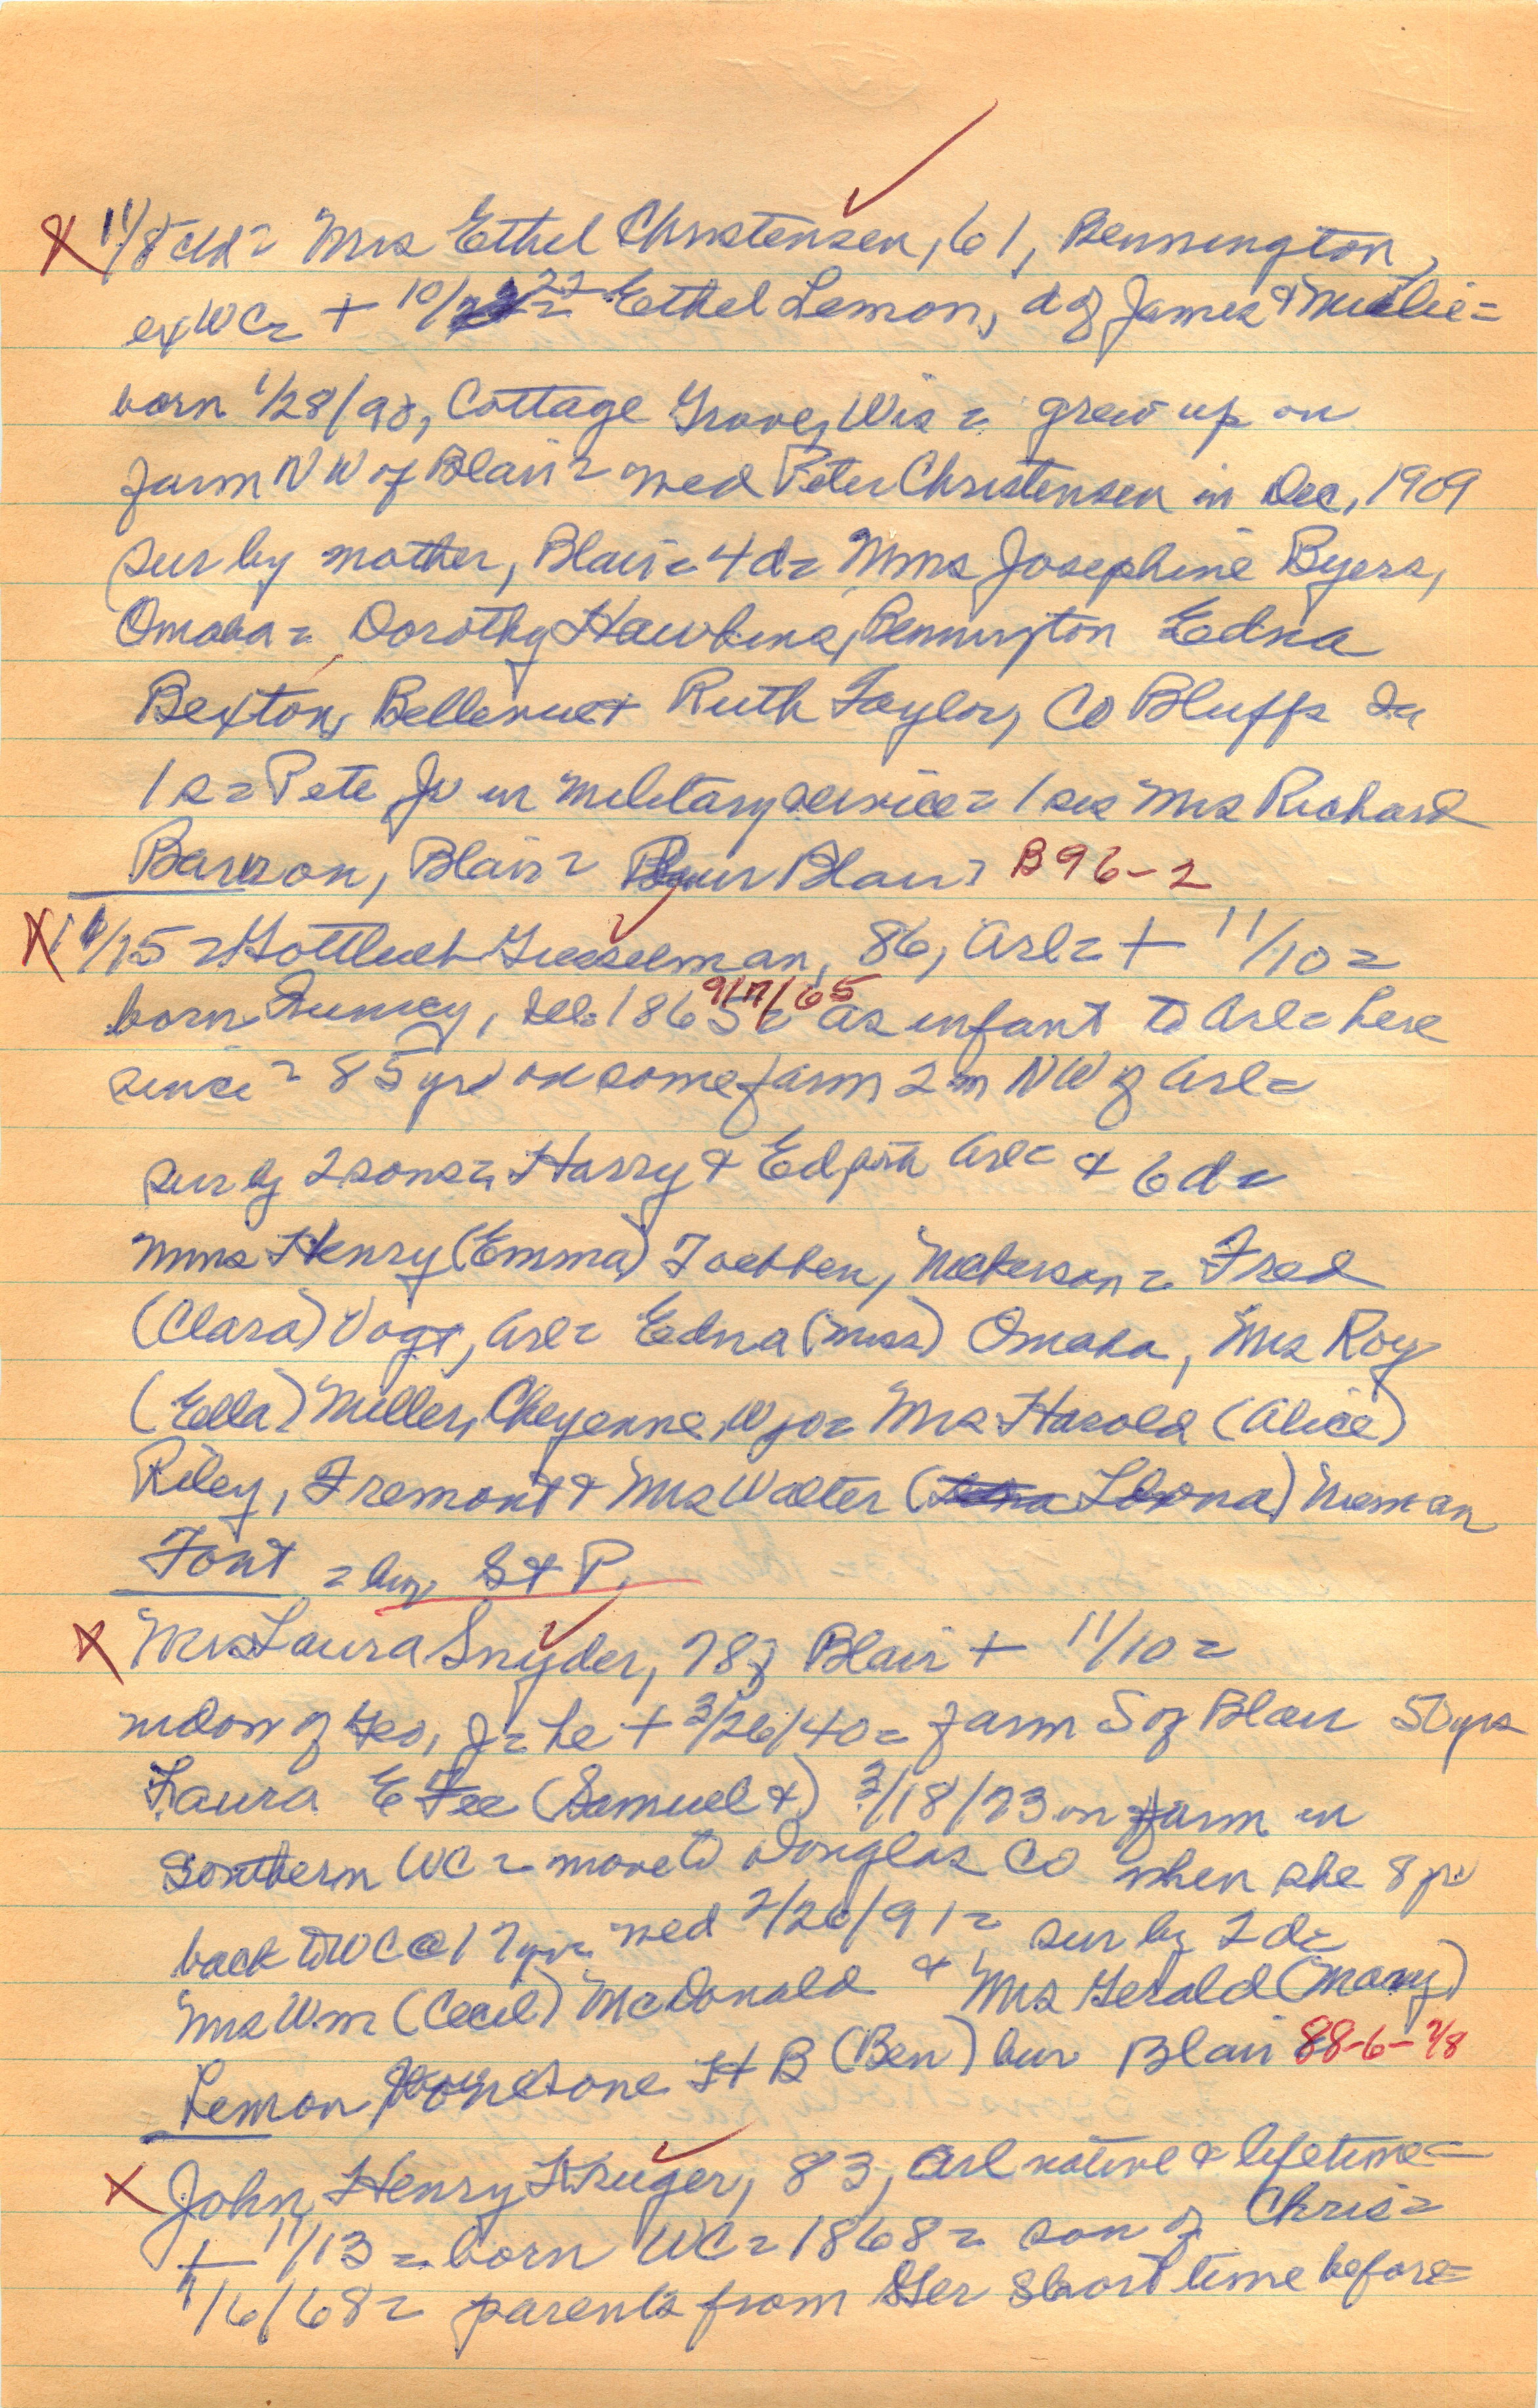 X 11/8 cld = Mrs Ethel Christensen, 61, Bennington,
ex WC = + 10/22 = Ethel Lemon, d of James & Millie =
born 1/28/90, Cottage Grove, Wis = grew up on
farm NW of Blair = wed Peter Christensen in Dec, 1909
sur by mother, Blair = 4 d = Mmes Josephine Byers,
Omaha = Dorothy Hawkins, Bennington Edna
Bexton, Bellevue + Ruth Taylor, Co Bluffs Ia
1 s = Pete Jr in military service = 1 sis Mrs Richard
Barron, Blair = bur Blair = B96-2
X 11/15 = Gottlieb Giesselman, 86, Arl = + 11/10 =
9/17/65
born Quincy, Ill 1865 = as infant to Arl = here
since = 85 yrs on same farm 2 m NW of Arl =
sur by 2 sons = Harry & Ed, both Arl = & 6 d =
Mms Henry (Emma) Toebben, Nickerson = Fred
(Clara) Vogt, Arl = Edna (Miss) Omaha, Mrs Roy
(Ella) Miller, Cheyenne, Wyo = Mrs Harold (Alice)
Riley, Fremont & Mrs Walter (Lorna) Nieman
Font = bur St P.
X Mrs Laura Snyder, 78, Blair + 11/10 =
widow of Geo, J = he + 3/26/40 = farm S of Blair 50 yrs
Laura E Fee (Samuel +) 3/18/73 on farm in
Southern WC = move to Douglas Co when she 8 yr
back to WC @ 17 yr = wed 2/26/91 = sur by 2 d =
Mrs Wm (Cecil) McDonald & Mrs Gerald (Mary)
Lemon, one H B (Ben) bur Blair 88-6-7/8
X John Henry Kruger, 83, Arl native & lifetime =
+ 11/13 = born WC = 1868 = son of Chris =
1/6/68 = parents from Ger short time before =